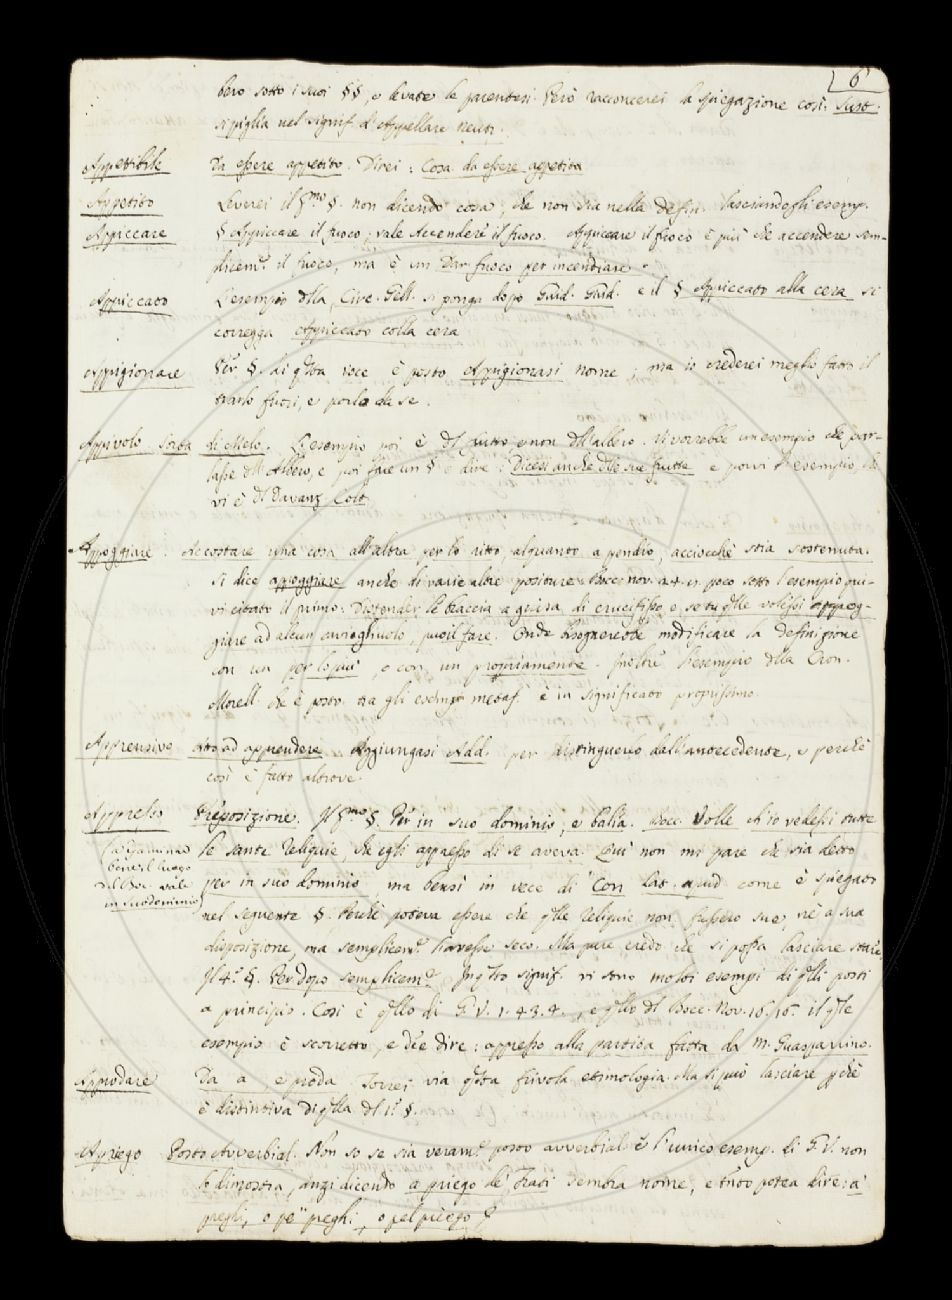 6
bero sotto i suoi §§, e levate le parentesi. Però racconcerei la spiegazione così: Sust.
si piglia nel signif. d'Appellare neutr.
Appetibile Da essere appetito. Direi: Cosa da essere appetita
Appetito Leverei il pmo §. non dicendo cosa, che non sia nella defin. lasciandogli esemp.
Appiccare § Appiccare il fuoco, vale Accendere il fuoco. Appiccare il fuoco è più che accendere sem-
plicemte. il fuoco, ma è un Dar fuoco per incendiare.
Appiccato L'esempio dlla Circ. Gell. si ponga dopo Guid. Guid. e il § Appiccato alla cera si
corregga Appiccato colla cera
Appigionare Per § di qsta voce è posto Appigionasi nome; ma io crederei meglio fatto il
trarlo fuori, e porlo da se.
Appivolo sorta di Melo. L'esempio poi è dl frutto e non dll'albero. Vi vorrebbe un esempio che par-
lasse dll'Albero, e poi fare un § e dire: Dicesi anche dlle sue frutte e porvi l'esempio, che
vi è dl Davanz. Colt.
Appoggiare. Accostare una cosa all'altra per lo ritto, alquanto a pendio, acciocchè stia sostenuta.
Si dice appoggiare anche di varie altre positure. Bocc. nov. 24. 11. poco sotto l'esempio qui-
vi citato il primo: Distender le braccia a guisa di crucifisso, e se tu qlle volessi appog-
giare ad alcun cavigliuolo, puoil fare. Onde bisognerebbe modificare la definizione
con un per lo più, o con un propriamente. Inoltre l'esempio dlla Cron.
Morell. che è posto tra gli esempi metaf. è in significato propissimo.
Apprensivo atto ad apprendere Aggiungasi Add. per distinguerlo dall'antecedente, e perchè
così è fatto altrove.
Appresso Preposizione. Il pmo §. Per in suo dominio, e balìa. Bocc. Volle ch'io vedessi tutte
(a esaminar
bene il luogo
dl Boc. vale
in suo dominio)
le sante reliquie, che egli appresso di se aveva. Qui non mi pare che sia detto
per in suo dominio, ma bensì in vece di Con Lat. apud. come è spiegato
nel seguente §. Perchè poteva essere che qlle reliquie non fussero sue, nè a sua
disposizione, ma semplicemte. l'avesse seco. Ma pure credo che si possa lasciare stare
Il 4.° §. Per dopo semplicemte. In qsto signif. vi sono molti esempi di qlli posti
a principio. Così è qllo di G. V. 1. 43. 4., e qllo dl Bocc. Nov. 16. 16. il qle
esempio è scorretto, e dee dire: appresso alla partita fatta da M. Guasparrino.
Approdare Da a e proda. Torrei via qsta frivola etimologia. Ma si può lasciare pchè
è distintiva di qlla dl 1.° §.
Apriego Posto Avverbial. Non so se sia veramte. posto avverbial. e l'unico esemp. di G. V. non
lo dimostra, anzi dicendo a priego de' Frati sembra nome, e tanto potea dire: a'
preghi, o pe' preghi, o pel priego &